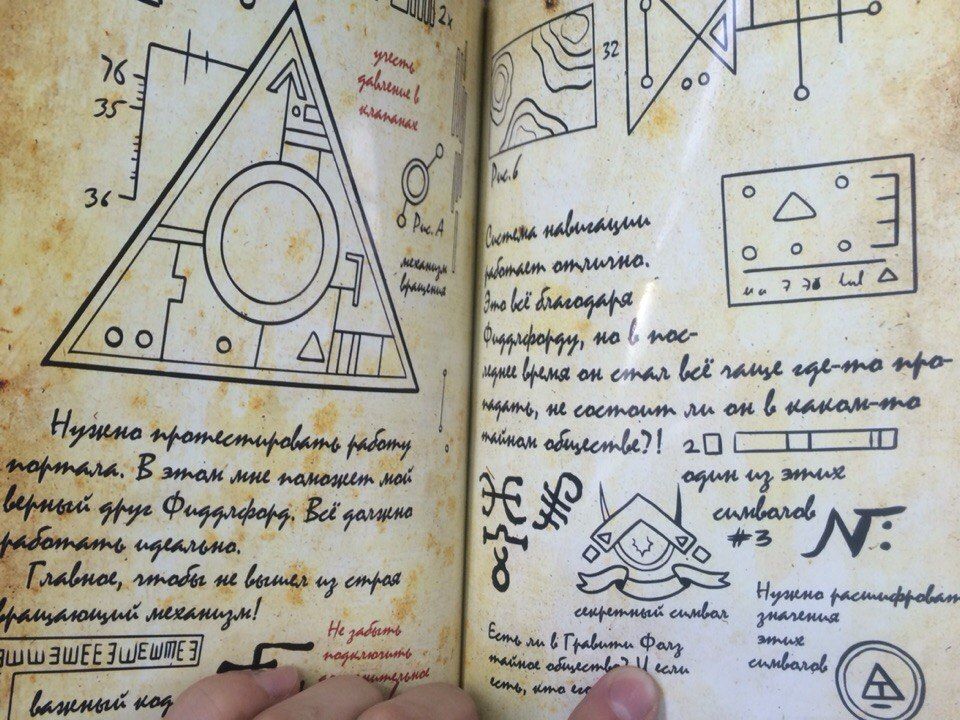 2x
учесть
давление в
клапанах
76
35
36
Рис. А
механизм
вращения
Нужно протестировать работу
портала. В этом мне поможет мой
верный друг Фиддлфорд. Всё должно
работать идеально.
Главное, чтобы не вышел из строя
вращающий механизм!
важный код
Не забыть
подключить
32
Рис. Б
Система навигации
работает отлично.
Это всё благодаря
Фиддлфорду, но в пос-
леднее время он стал всё чаще где-то про-
падать, не состоит ли он в каком-то
тайном обществе?!
2
один из этих
символов
#3
секретный символ
Есть ли в Гравити Фолз
тайное общество? И если
есть, кто его
Нужно расшифровать
значения
этих
символов